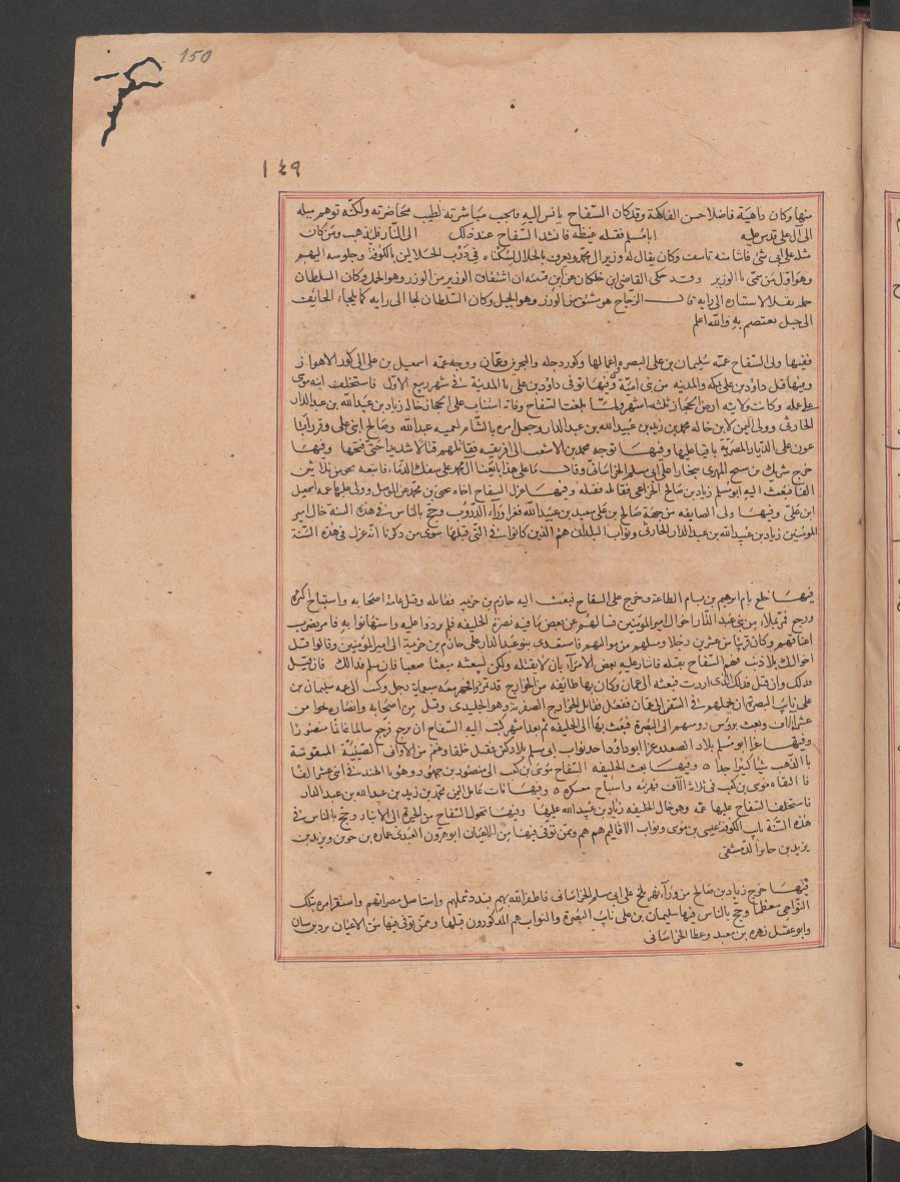 150
١٤٩
منها وكان داهية فاضلا حسن الفاكهة وقد كان السفاح يانس اليه ويحب مباشرته لطيب محاضرته ولكنه توهم ميله
الى ال على فدس عليه ابا مسلم فقتله غيظة فانشد السفاح عند ذلك الى النار فليذهب ومن كان
مثله على اى شى فاتنا منه تاسف وكان يقال له وزير ال محمد ويعرف بالخلال لسكناه فى درب الخلالين بالكوفة وجلوسه اليهم
وهو اول من سمى بالوزير وقد حكى القاضى ابن خلكان عن ابن قتيبه ان اشتقاق الوزير من الوزر وهو الحمل وكان السلطان
حمله بقلا لاستناده الى رايه قال الزجاج هو مشتق من الوزر وهو الجبل وكان السلطان لجا الى رايه كما يلجاء الخايف
الى جبل يعتصم به والله اعلم
ففيها ولى السفاح عمه سليمان بن على البصره واعمالها وكور دجله والبحرين وعمان ووجه عمه اسمعيل بن على الى كور الاهواز
وفيها قتل داود بن على بمكه والمدينه من بنى امية وفيها توفى داود بن على بالمدينة فى شهر ربيع الاول فاستخلف ابنه موسى
على عمله وكانت ولايته ارض الحجاز ثلثه اشهر ولما بلغت السفاح وفاته استناب على الحجاز خاله زياد بن عبيد الله بن عبد الدار
الحارثى وولى اليمن لابن خاله محمد بن زيد بن عبيد الله بن عبد الدار وجعل امره بالشام لعميه عبد الله وصالح ابنى على وقرر ابا
عون على الديار المصرية باقيا عليها وفيها توجه محمد بن الاشعث الى افريقيه فقاتلهم قتالا شديدا حتى فتحها وفيها
خرج شريك بن سيح المهرى ببخارا على ابى مسلم الخراسانى وقال ما على هذا بايعنا ال محمد على سفك الدماء فاتبعه نحو من ثلاثين
الفا فبعث اليه ابو مسلم زياد بن صالح الخزاعى فقاتله فقتله وفيها عزل السفاح اخاه يحيى بن محمد عن الموصل وولى عليها عمه اسمعيل
ابن على وفيها ولى الصايفه من جهة صالح بن على سعيد بن عبيد الله فغزا ورآء الدروب وحج بالناس فى هذه السنة خال امير
المومنين زياد بن عبيد الله بن عبد الدار الحارثى ونواب البلدان هم الذين كانوا فى التى قبلها سوى من ذكرنا انه عزل فى هذه السنة
فيها خلع بام ابرهيم بن بسام الطاعة وخرج على السفاح فبعث اليه خازم بن خزيمه فقاتله وقتل عامة اصحابه واستباح اكثره
ورجع فمر بملاء من بنى عبد الدار اخوال امير المومنين فسالهم عن بعض ما فيه نصرة الخليفه فلم يردوا عليه واستهانوا به فامر بضرب
اعناقهم وكان قريبا من عشرين رجلا ومثلهم من مواليهم فاستعدى بنو عبد الدار على خازم بن خزيمة الى امير المومنين وقالوا قتل
اخوالك بلا ذنب فهم السفاح بقتله فاشار عليه بعض الامرآء بان لا يقتله ولكن ليبعثه مبعثا صعبا فان سلم فذالك فان قتل
فذلك وان قتل فذلك الذى اردت فبعثه الى عمان وكان بها طائفه من الخوارج قد تمردوا فجهز معه سبعمائة رجل وكتب الى عمه سليمان بن
على نايب البصرة ان يحملهم فى السفن الى عمان ففعل فقاتل الخوارج الصفرية وهو الجلندى وقتل من اصحابه وانصاره نحوا من
عشرة الاف وبعث بروس روسهم الى البصرة فبعث بها الى الخليفه ثم بعد اشهر كتب اليه السفاح ان يرجع فرجع سالما غانما منصورا
وفيها غزا ابو مسلم بلاد الصغد وغزا ابو داود احد نواب ابى مسلم بلاد كش فقتل خلقا وغنم من الاوانى الصينية المنقوشة
بالذهب شيا كثيرا جدا وفيها بعث الخليفه السفاح موسى بن كعب الى منصور بن جمهور وهو بالهند فى اثنى عشر الفا
فالتقاه موسى بن كعب فى ثلاثة الاف فهزمه واستباح معسكره وفيها مات عامل اليمن محمد بن زيد بن عبد الله بن عبد الدار
فاستخلف السفاح عليها عمه وهو خال الخليفه زياد بن عبيد الله عليها وفيها تحول السفاح من الحيرة الى الانبار وحج بالناس فى
هذه السنة نايب الكوفة عيسى بن موسى ونواب الاقاليم هم هم وممن توفى فيها من الاعيان ابو هرون العبدى عماره بن جوين ويزيد بن
يزيد بن جابر الدمشقى
فيها خرج زياد بن صالح من ورآء نهر بلخ على ابى مسلم الخراسانى فاظفر الله بهم فبدد شملهم واستاصل مصرانهم واستقر امره بتلك
النواحى معظما وحج بالناس فيها سليمان بن على نايب البصرة والنواب هم المذكورون قبلها وممن توفى فيها من الاعيان برد بن سنان
وابو عقيل زهره بن معبد وعطا الخراسانى